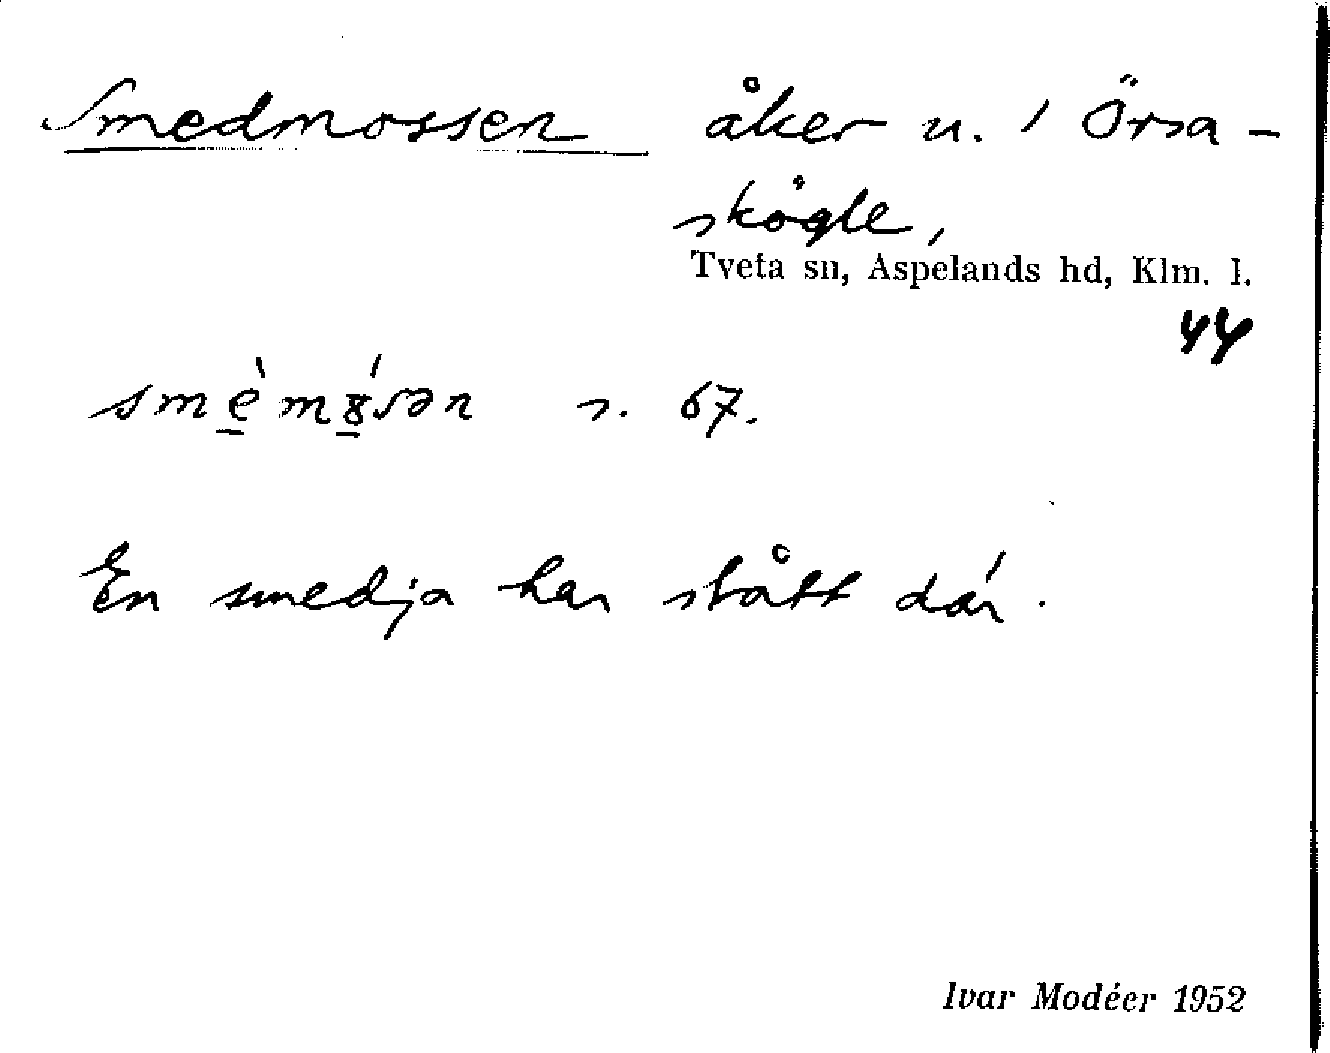 Smedmossen åker u. / Örsa-
skögle,
Tveta sn, Aspelands hd, Klm. l.
44
smè̠mȣ̠́sən s. 67.
En smedja har stått där.
Ivar Modéer 1952